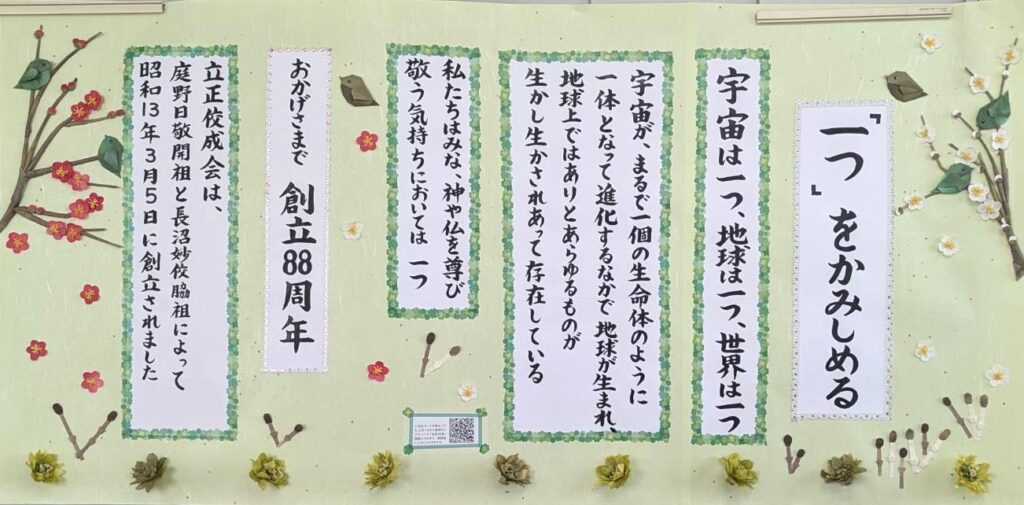 『一つ』をかみしめる
宇宙は一つ、地球は一つ、世界は一つ
宇宙が、まるで一個の生命体のように
一体となって進化するなかで 地球が生まれ、
地球上ではありとあらゆるものが
生かし生かされあって存在している
私たちはみな、神や仏を尊び
敬う気持ちにおいては 一つ
おかげさまで 創立88周年
立正佼成会は、
庭野日敬開祖と長沼妙佼脇祖によって
昭和13年3月5日に創立されました